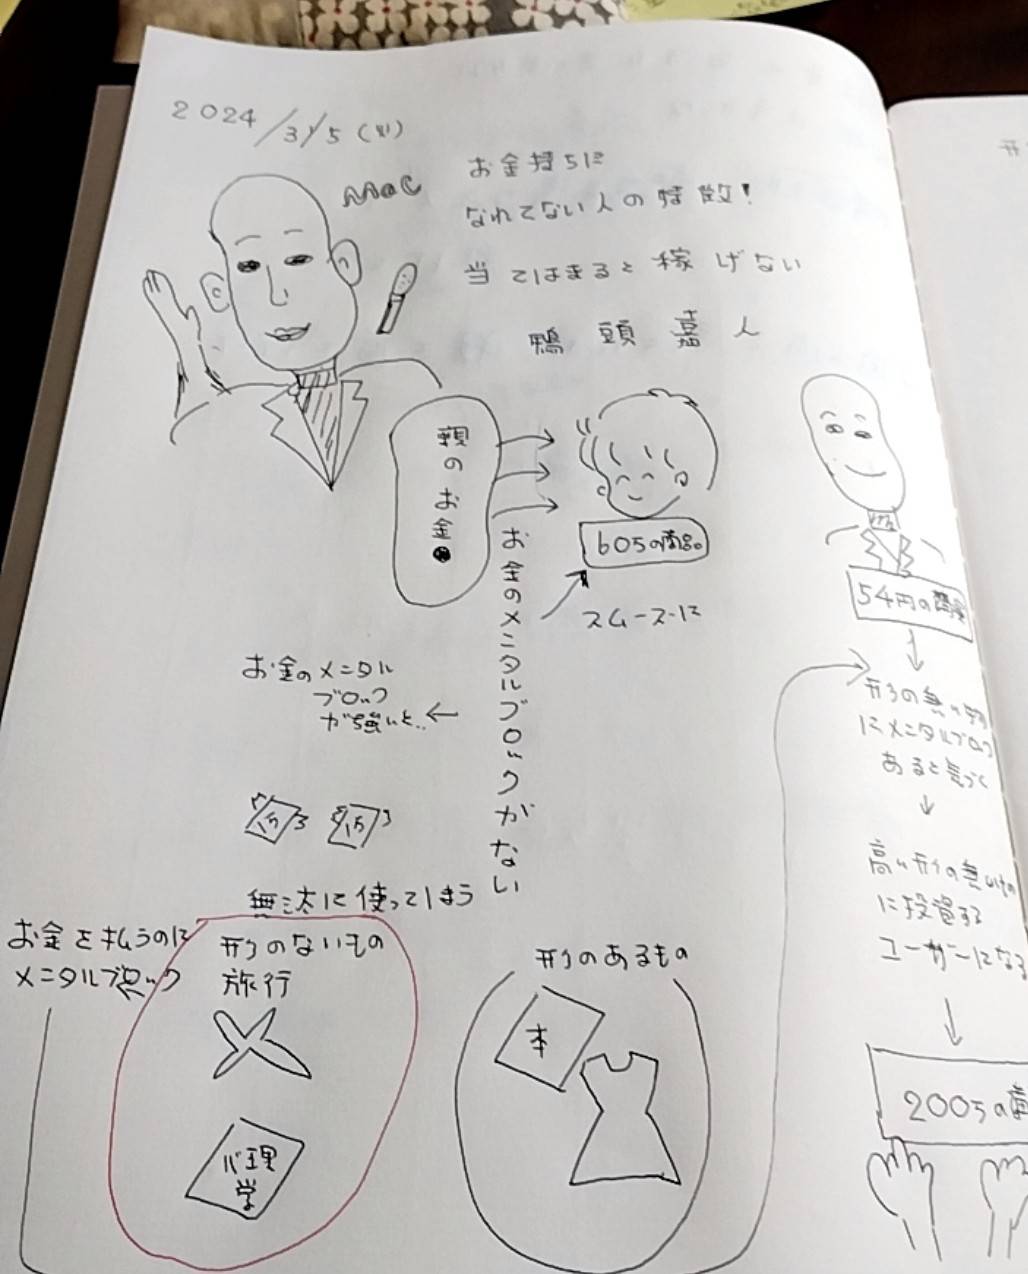 2024/3/5(火)
mac
お金持ちに
なれてない人の特徴!
当てはまると稼げない
鴨頭嘉人
親のお金
お金のメンタルブロックがない
605の商品。
スムーズに
お金のメンタル
ブロック
が強いと..
1万
1万
無汰に使ってしまう
お金を払うのに
メンタルブロック
形のないもの
旅行
心理
学
形のあるもの
本
54円の商
形の無い物
にメンタルブロック
あると気づく
高い形の無いもの
に投資する
ユーザーになる
2005の商